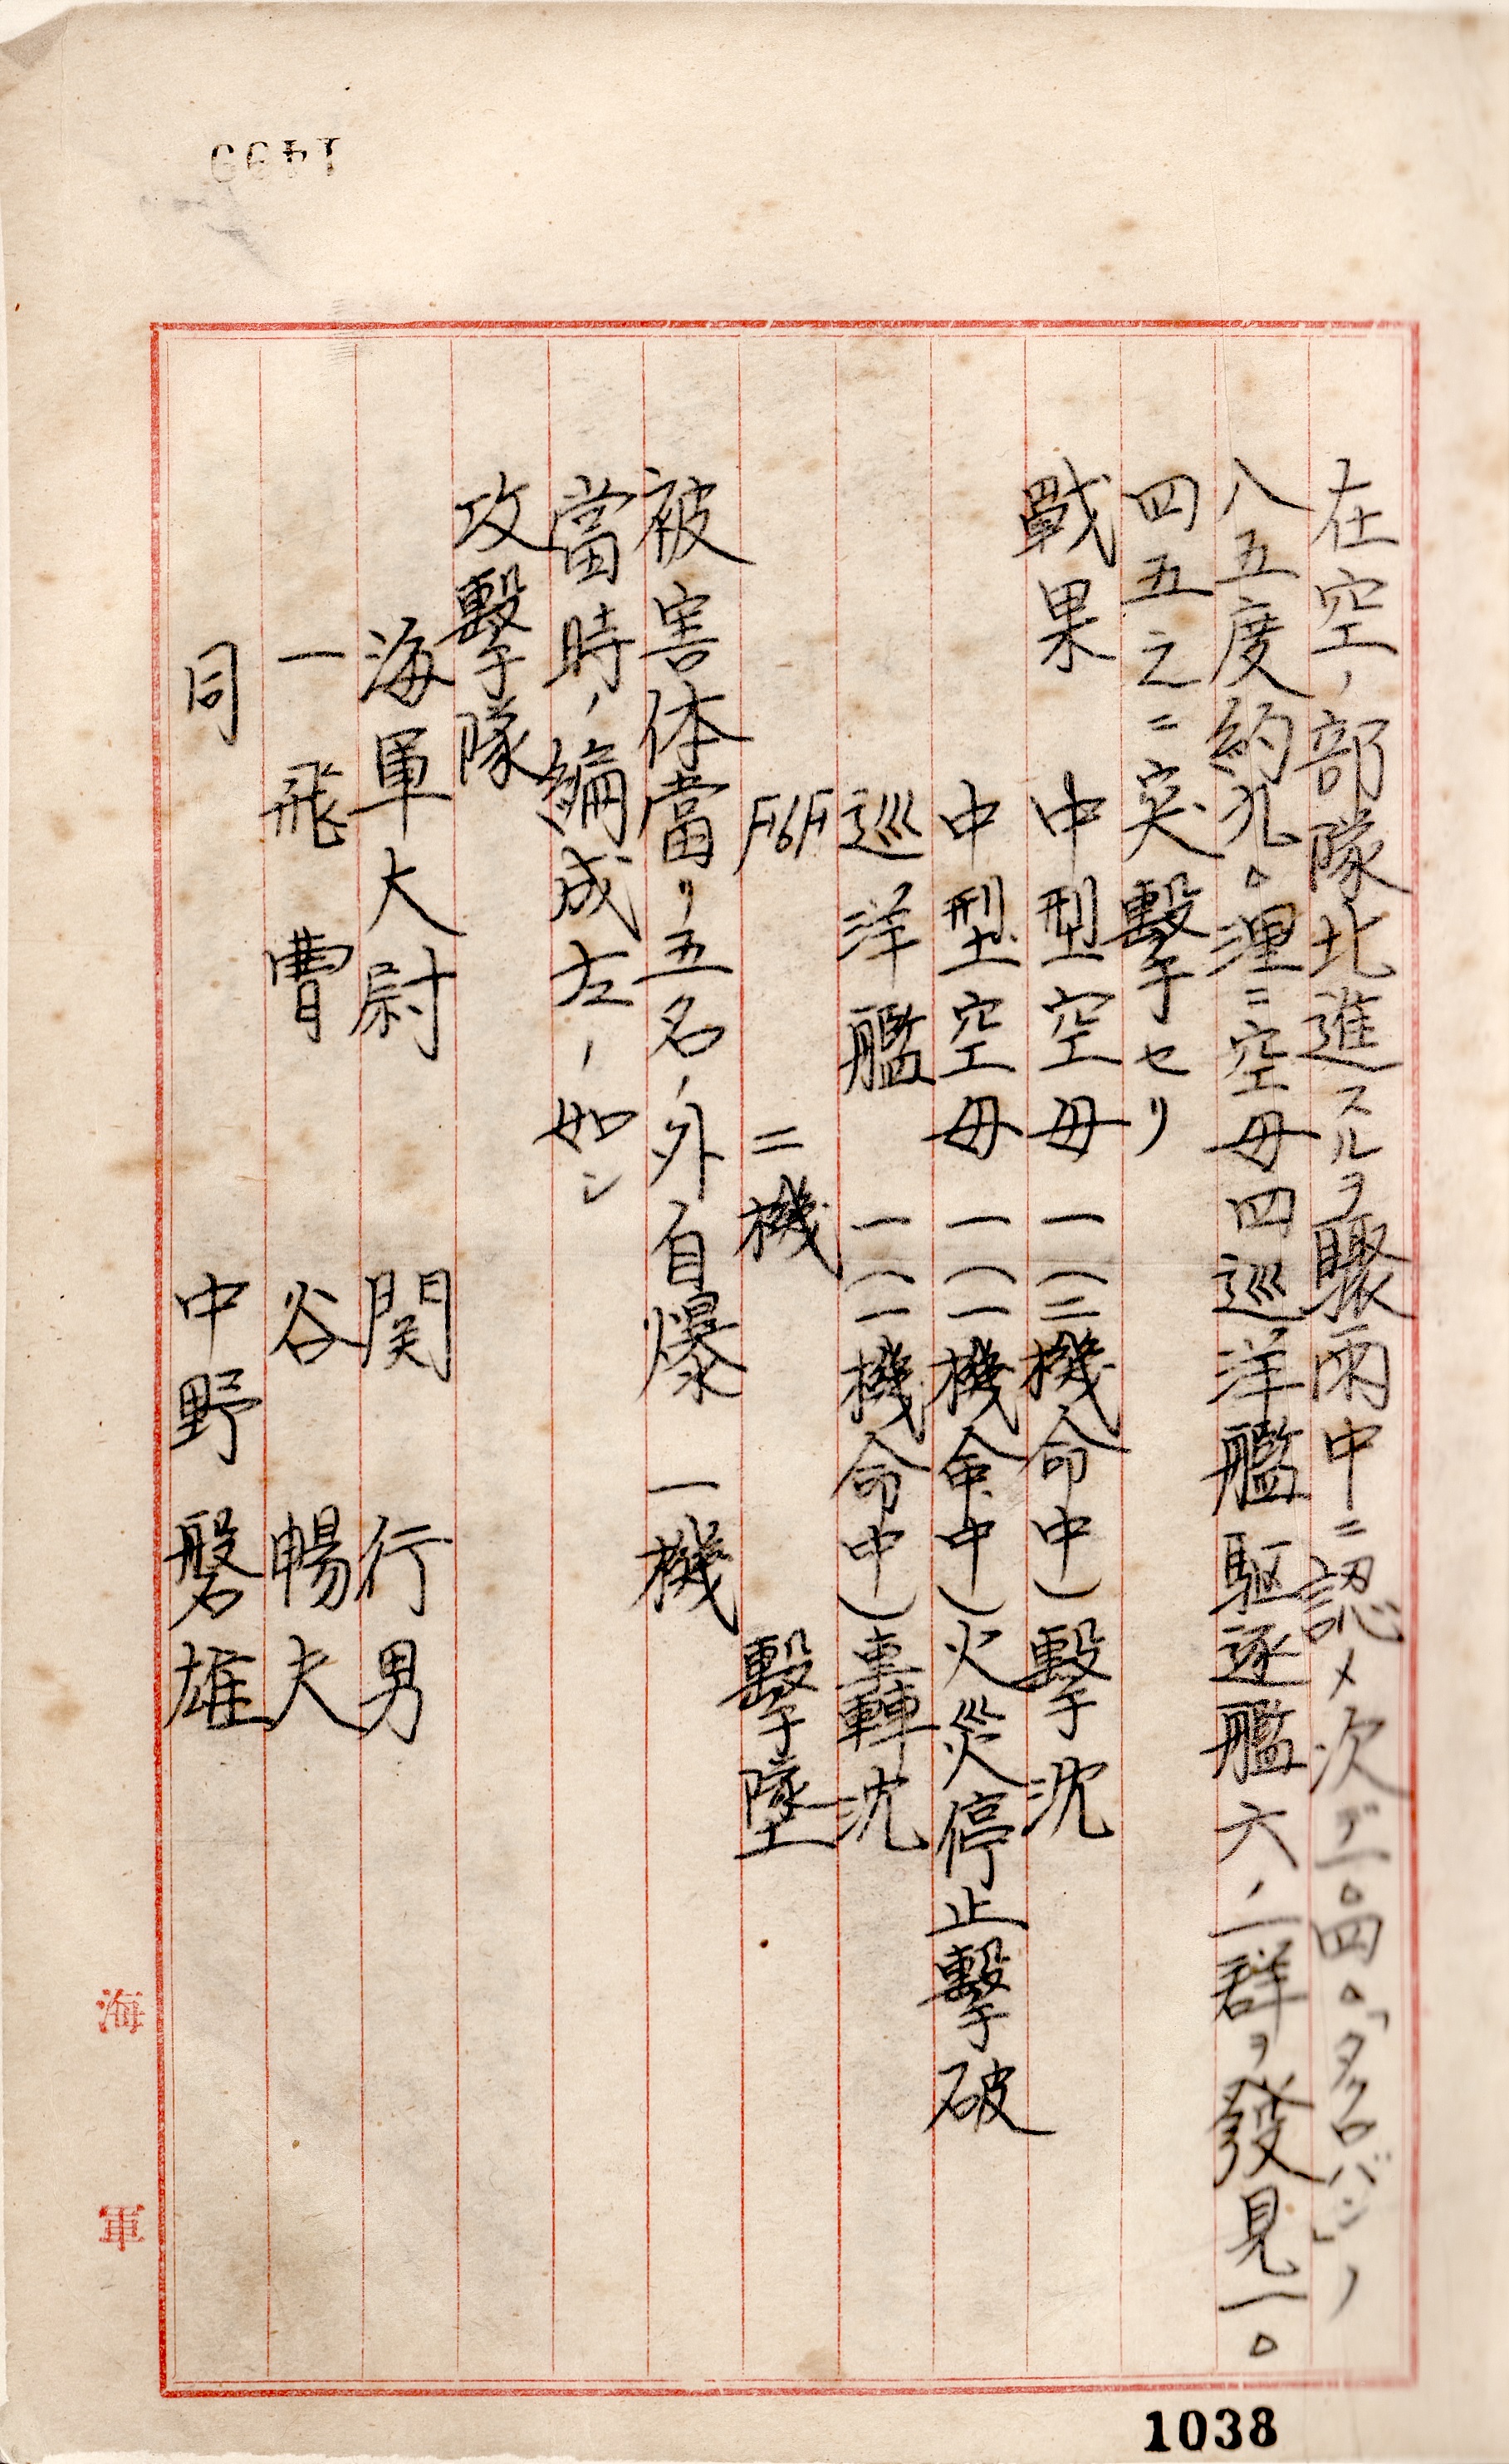 在空ノ部隊北進スルヲ驟雨中ニ認メ次デ一〇四〇「タクロバン」ノ
八五度約九〇浬ニ空母四巡洋艦駆逐艦六ノ一群ヲ發見一〇
四五之ニ突撃セリ
戰果　中型空母　一（二機命中）撃沈
中型空母　一（一機命中）火災停止撃破
巡洋艦　一（一機命中）轟沈
F6F　二機　撃墜
被害体當リノ五名ノ外自爆　一機
當時ノ編成左ノ如シ
攻撃隊
海軍大尉　関　行男
一飛曹　谷　暢夫
同　中野　磐雄
海軍
1038